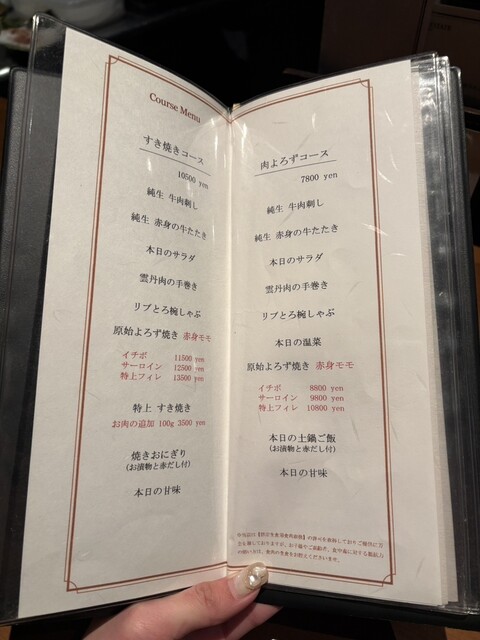 Course Menu
すき焼きコース
10500 yen
純生 牛肉刺し
純生 赤身の牛たたき
本日のサラダ
雲丹肉の手巻き
リブとろ椀しゃぶ
原始よろず焼き 赤身モモ
イチボ 11500 yen
サーロイン 12500 yen
特上フィレ 13500 yen
特上 すき焼き
お肉の追加 100g 3500 yen
焼きおにぎり
(お漬物と赤だし付)
本日の甘味
肉よろずコース
7800 yen
純生 牛肉刺し
純生 赤身の牛たたき
本日のサラダ
雲丹肉の手巻き
リブとろ椀しゃぶ
本日の温菜
原始よろず焼き 赤身モモ
イチボ 8800 yen
サーロイン 9800 yen
特上フィレ 10800 yen
本日の土鍋ご飯
(お漬物と赤だし付)
本日の甘味